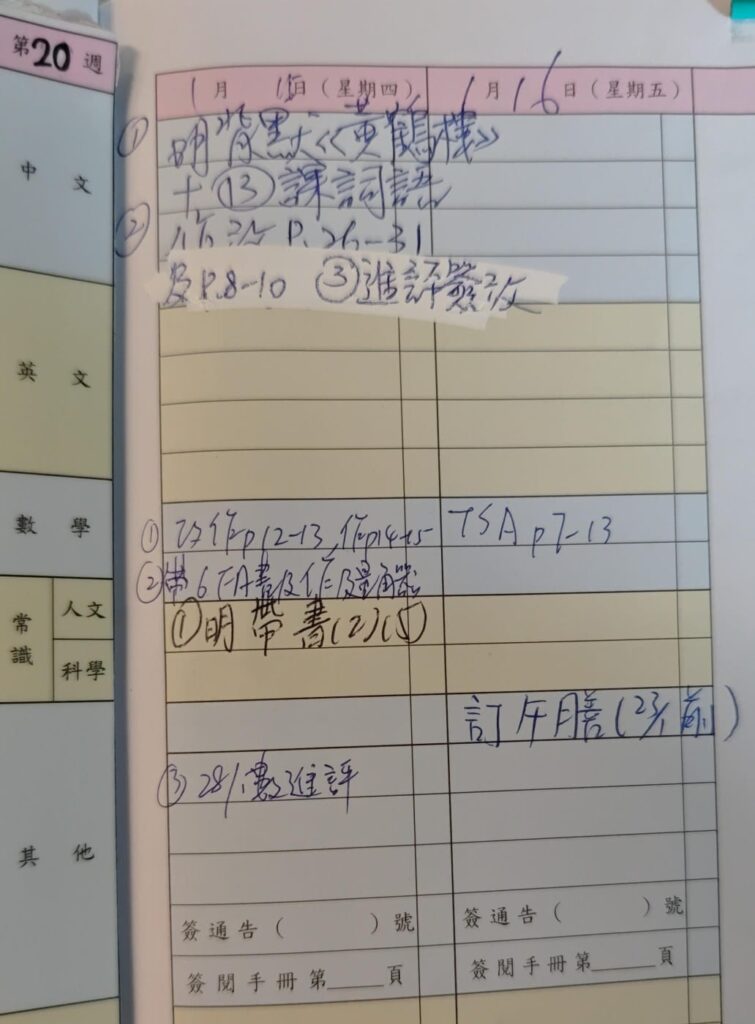 第20週
1月 15日（星期四）
1月16日（星期五）
中 文
① 明背默《黃鶴樓》
+ ⑬ 課詞語
② 作改 P.26-31
及P.8-10 ③進評簽改
英 文
數 學
① 改作p12-13,作p14-15
TSA p7-13
② 帶6下A書及作及量角器
常識
人文
① 明帶書(2)(5)
科學
訂午膳(23/1前)
③ 28/1數進評
其 他
簽通告（ ）號
簽通告（ ）號
簽閱手冊第_____頁
簽閱手冊第_____頁